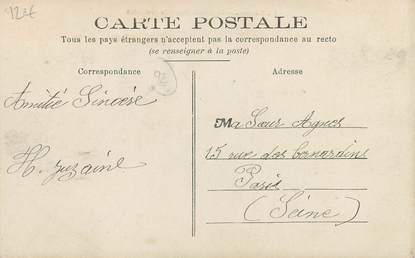 12€
CARTE POSTALE
Tous les pays étrangers n'acceptent pas la correspondance au recto
(se renseigner à la poste)
Correspondance
Adresse
Amitié Sincère
Ma Sœur Agnes
15 rue des bernardins
H.
Paris
(Seine)